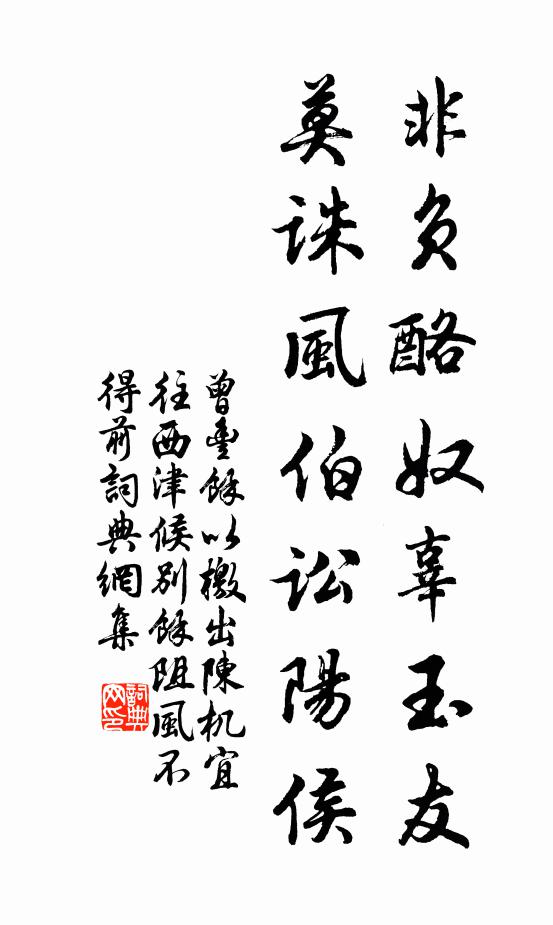 非負酪奴辜玉友
莫誅風伯訟陽侯
曾豐餘以檄出陳机宜
往西津候別餘阻風不
得前詞典網集
詞典網印